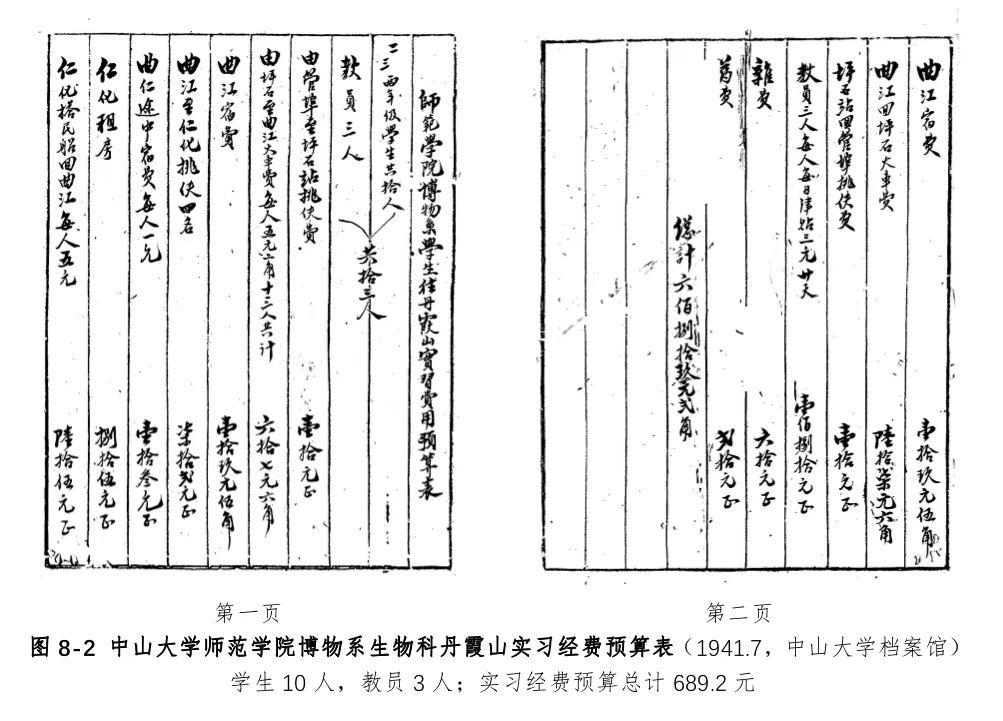 師範學院博物系學生往丹霞山實習費用預算表
二三四年級學生共拾人
教員三人
共拾三人
由管埠至坪石站挑伕費 壹拾元正
由坪石至曲江火車費每人五元二角十三人共計 六拾七元六角
曲江宿費 壹拾玖元伍角
曲江至仁化挑伕四名 柒拾弍元正
曲仁途中宿費每人一元 壹拾叁元正
仁化租房 捌拾伍元正
仁化搭民船回曲江每人五元 陸拾伍元正
曲江宿費 壹拾玖元伍角
曲江回坪石火車費 陸拾柒元六角
坪石站回管埠挑伕費 壹拾元正
教員三人每人每日津貼三元廿天 壹佰捌拾元正
雜費 六拾元正
費 弍拾元正
總計六佰捌拾玖元弍角
第一页
第二页
图 8-2 中山大学师范学院博物系生物科丹霞山实习经费预算表（1941.7，中山大学档案馆）
学生 10 人，教员 3 人；实习经费预算总计 689.2 元